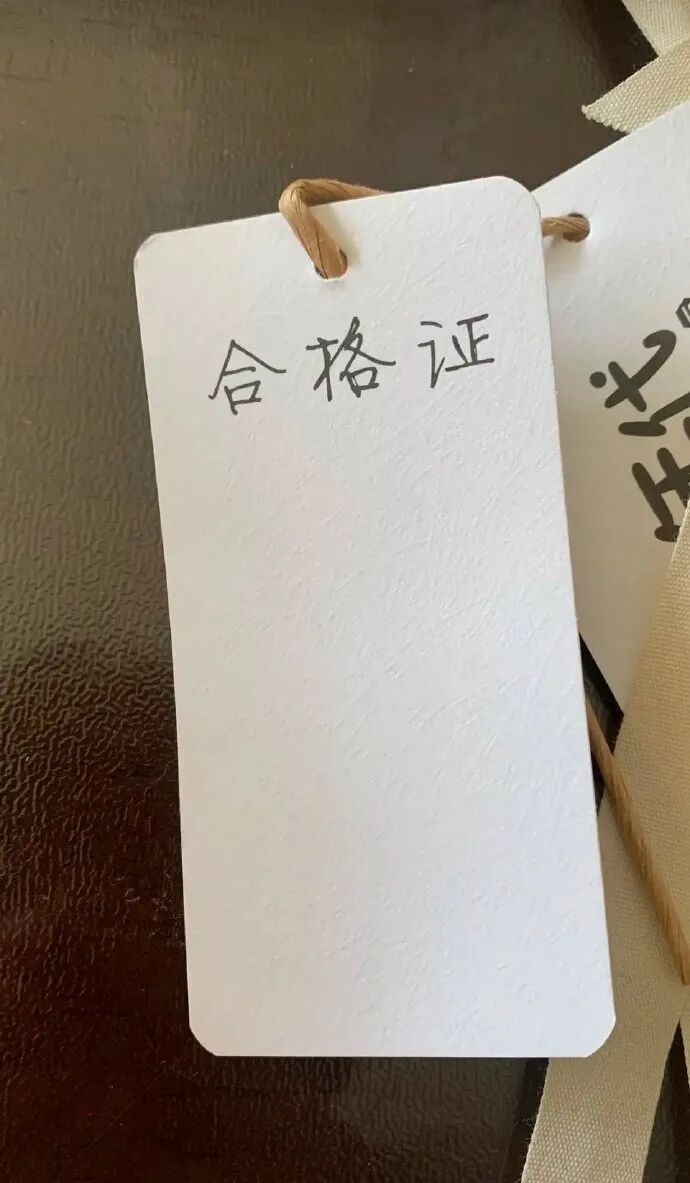 合格证